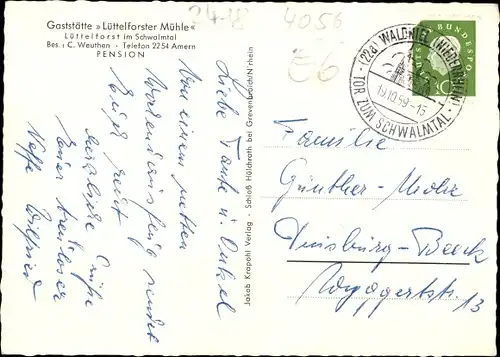 Gaststätte »Lüttelforster Mühle«
Lüttelforst im Schwalmtal
Bes.: C. Weuthen - Telefon 2254 Amern
PENSION
24-18
4056
E6
(22a) WALDNIEL (NIEDERRHEIN)
19.10.59-15
TOR ZUM SCHWALMTAL
DEUTSCHE BUNDESPOST
10
Liebe Tante u. Onkel
Von einem netten
sendet
Euch
herzliche Grüße
Euer
Neffe Wilfried
Jakob Krapohl Verlag - Schloß Hülchrath bei Grevenbroich/Nrhein
Familie
Günther-Mohr
Duisburg-Beeck
13